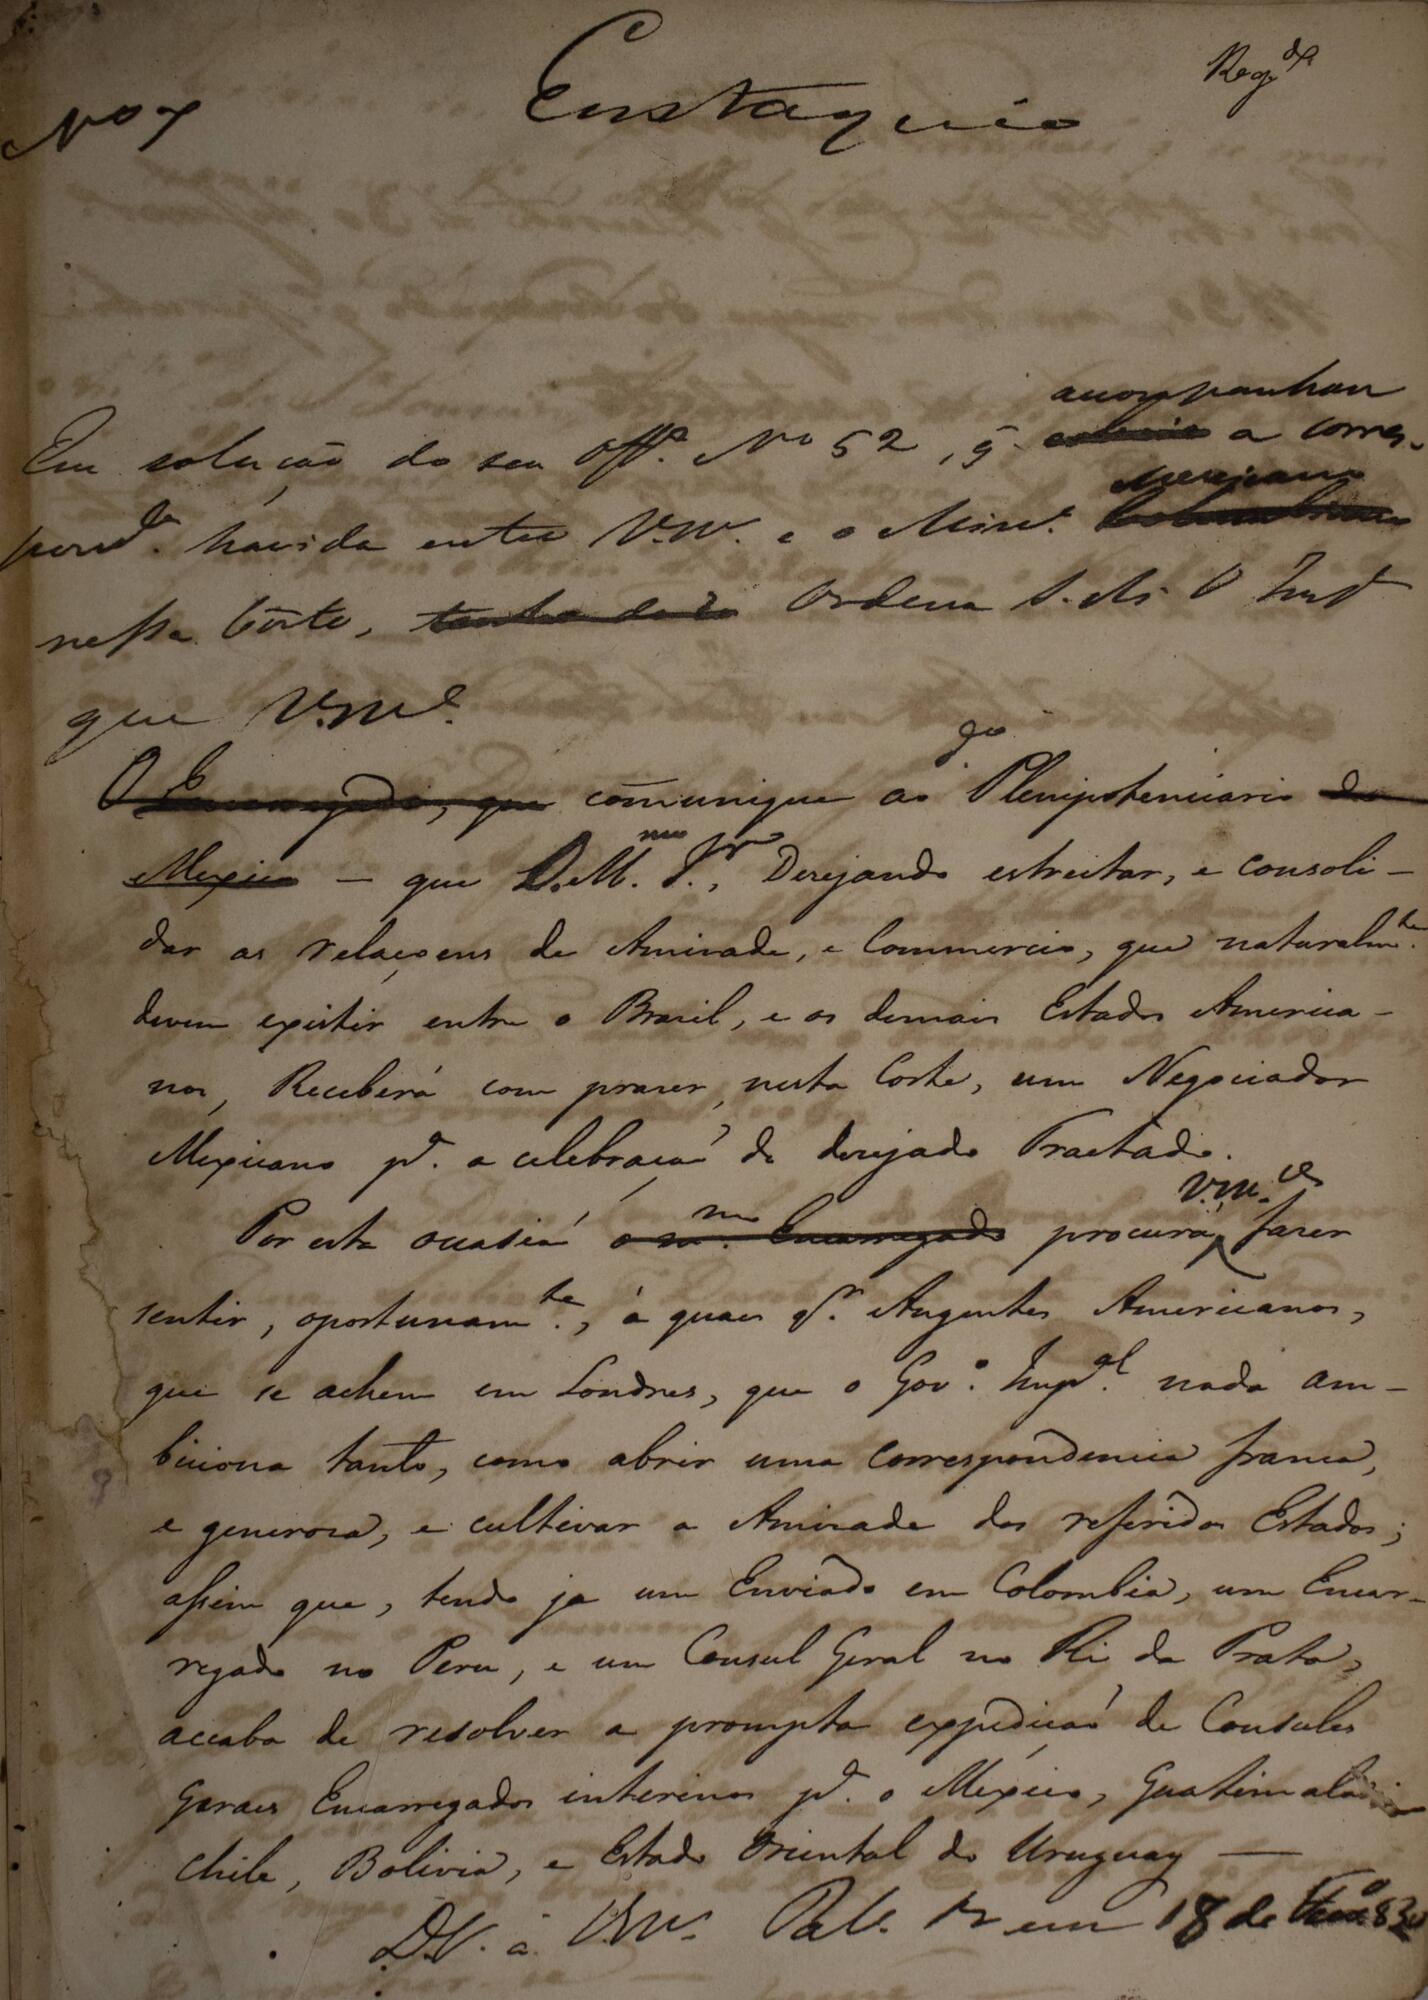 Nº 7
Eustaquio
Reg.do
acompanhou
Em solução do seu Off.º Nº 52, q̃ a corres-
Mexicano
pond.ª havida entre V.M. e o Min.º Colombiano
nessa Côrte, tenho dado Ordena S. M. O Imp.or
que V.M.ce
O Encarregado, que cõmunique ao d.º Plenipotenciario do
Mexico — que S. M. I., Desejando estreitar, e consoli-
dar as relaçoens de Amizade, e Commercio, que naturalm.te
devem existir entre o Brasil, e os demais Estados America-
nos, Receberá com prazer, nesta Corte, um Negociador
Mexicano p.ª a celebraçaõ do desejado Tractado.
V.M.ce
Por esta occasiaõ o m.mo Encarregado procurará fazer
sentir, oportunam.te, á quaes q.r Augentes Americanos,
que se achem em Londres, que o Gov.º Imp.al nada am-
biciona tanto, como abrir uma correspondencia franca,
e generosa, e cultivar a Amizade dos referidos Estados;
assim que, tendo ja um Enviado em Colombia, um Encar-
regado no Peru, e um Consul Geral no Rio da Prata,
accaba de resolver a prompta expediçaõ de Consules
Geraes Encarregados interinos p.ª o Mexico, Guatimala
Chile, Bolivia, e Estado Oriental do Uruguay —
D. G. a V.M. Pal. em 18 de 830